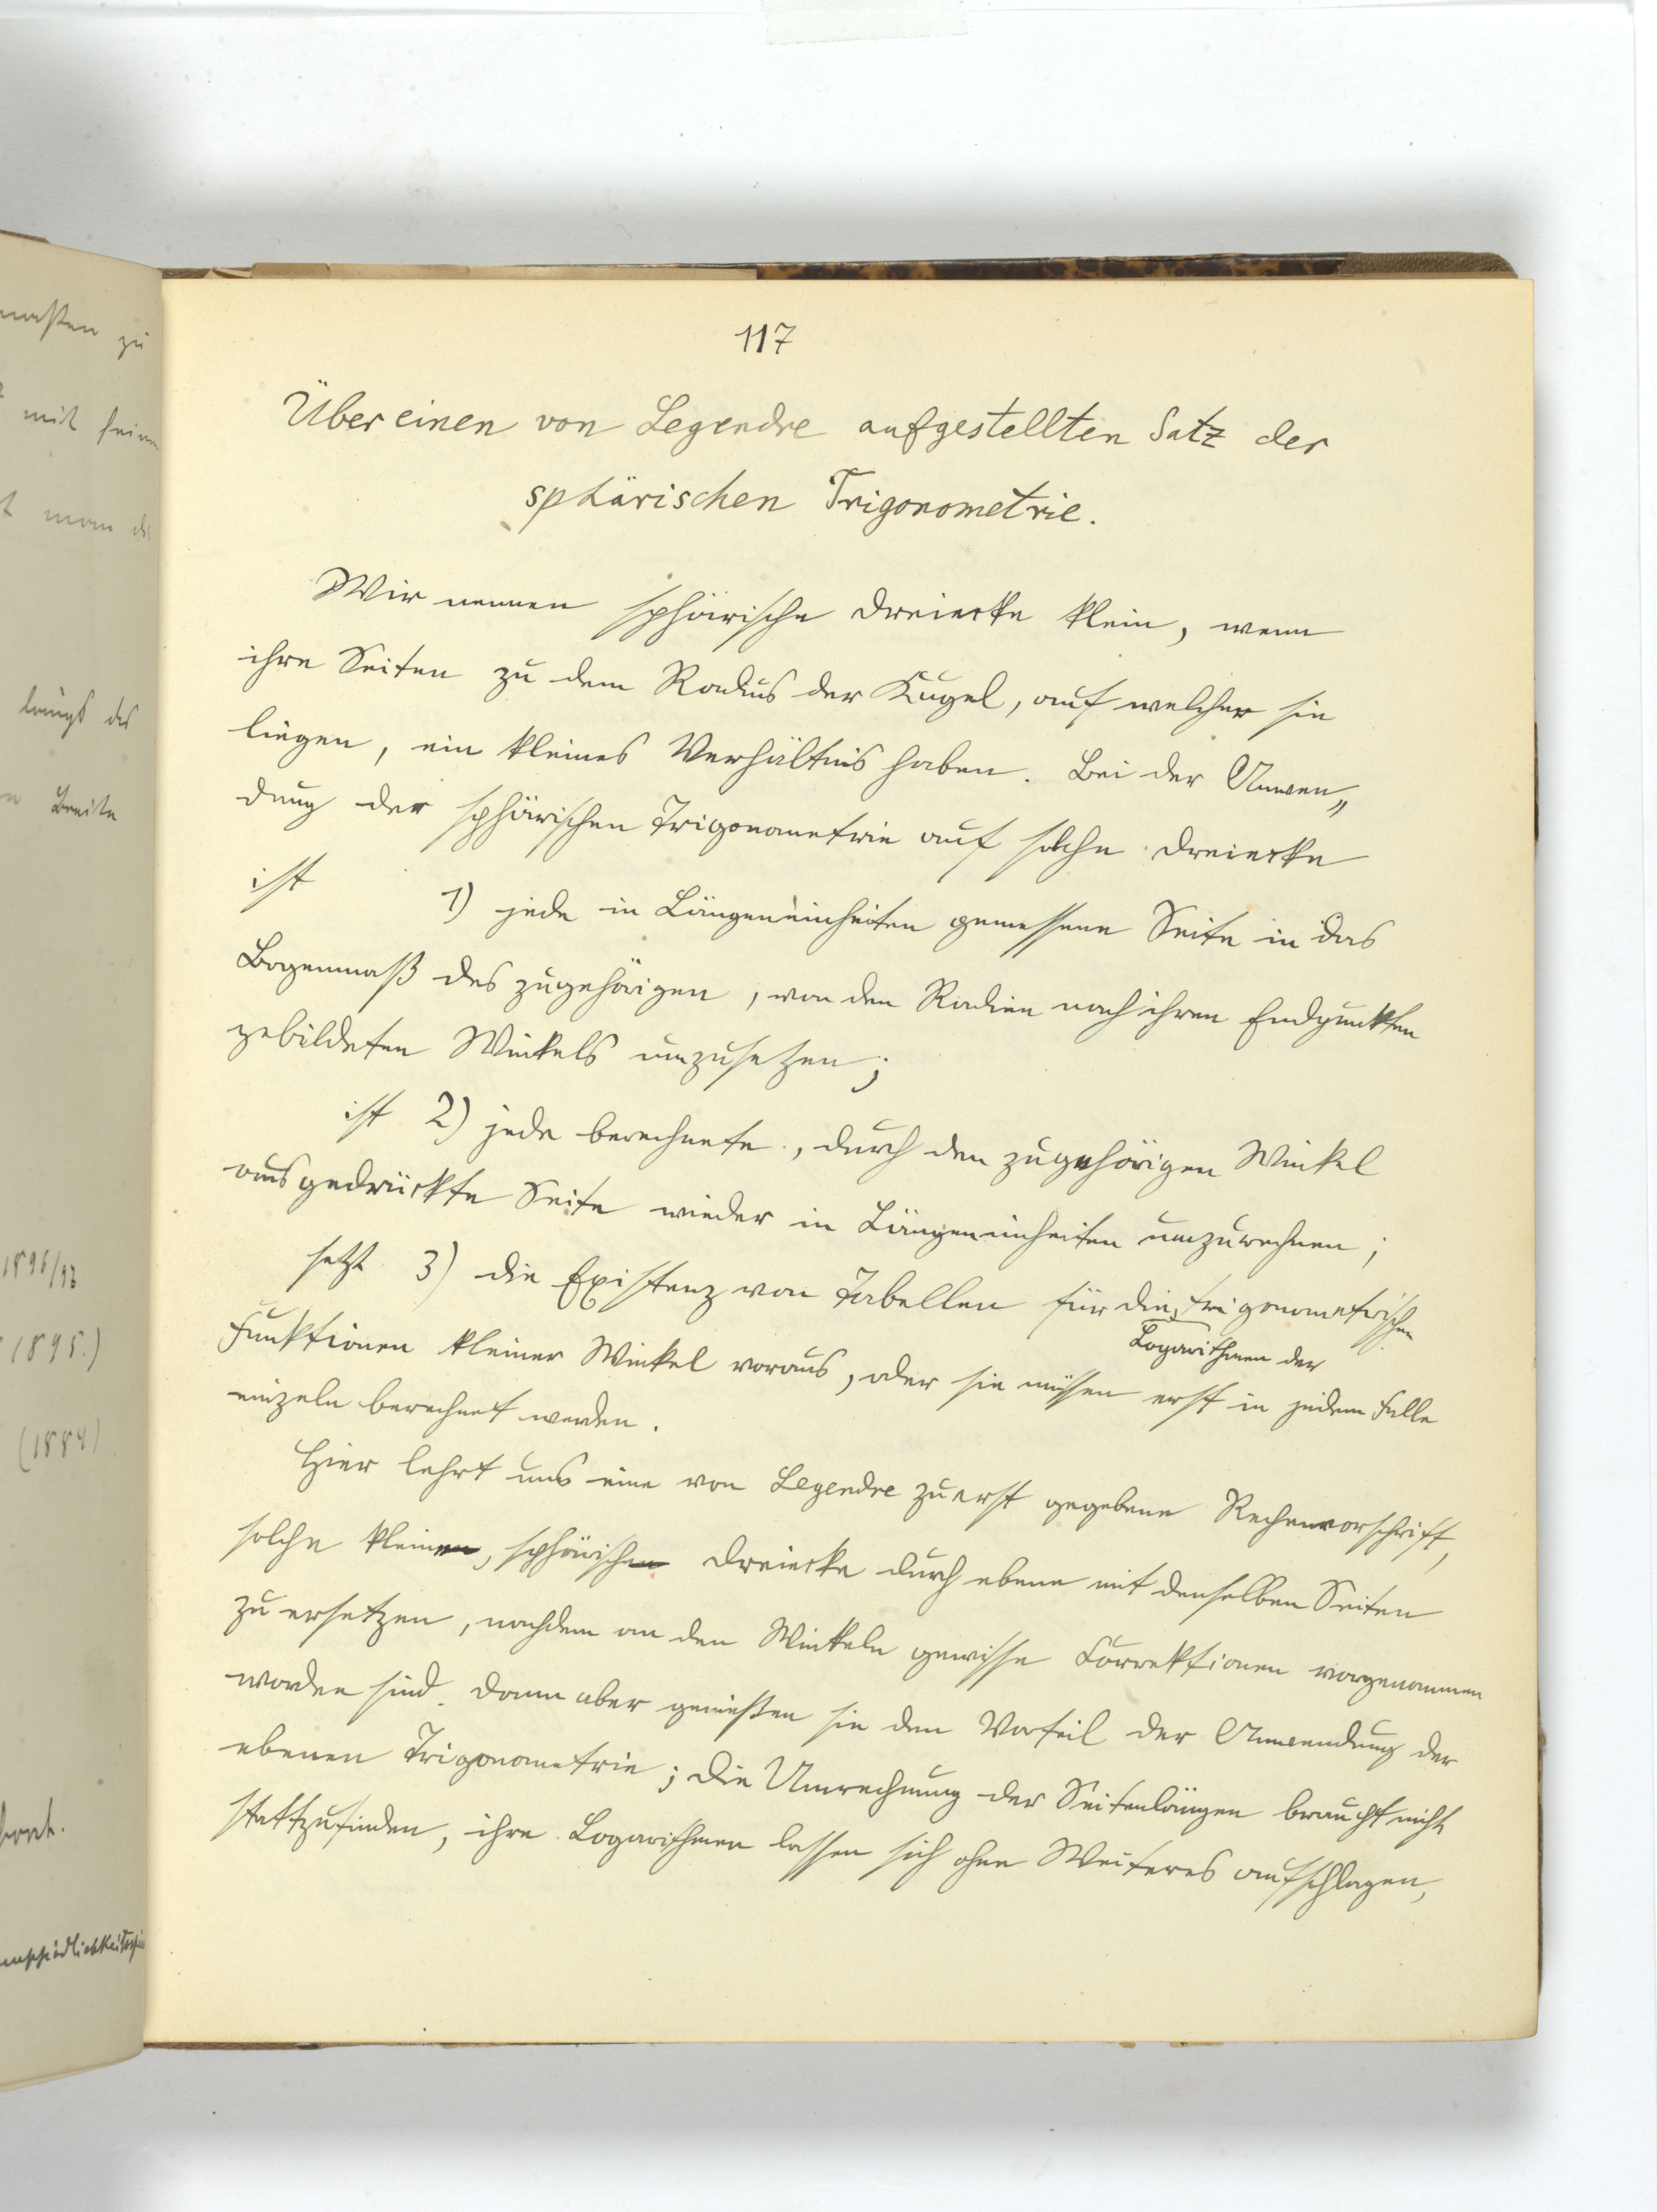 117
Über einen von Legendre aufgestellten Satz der
sphärischen Trigonometrie.
Wir nennen sphärische Dreiecke klein, wenn
ihre Seiten zu dem Radius der Kugel, auf welcher sie
liegen, ein kleines Verhältnis haben. Bei der Anwen„
dung der sphärischen Trigonometrie auf solche Dreiecke
ist 1) jede in Längeneinheiten gemessene Seite in das
Bogenmaß des zugehörigen, von den Radien nach ihren Endpunkten
gebildeten Winkels umzusetzen;
ist 2) jede berechnete, durch den zugehörigen Winkel
ausgedrückte Seite wieder in Längeneinheiten umzurechnen;
setzt 3) die Existenz von Tabellen für die trigonometrischen
Logarithmen der
Funktionen kleiner Winkel voraus, oder sie müssen erst in jedem Falle
einzeln berechnet werden.
Hier lehrt uns eine von Legendre zuerst gegebene Rechenvorschrift,
solche kleinen, sphärischen Dreiecke durch ebene mit denselben Seiten
zu ersetzen, nachdem an den Winkeln gewisse Correktionen vorgenommen
worden sind. Dann aber genießen sie den Vorteil der Anwendung der
ebenen Trigonometrie; die Umrechnung der Seitenlängen braucht nicht
stattzufinden, ihre Logarithmen lassen sich ohne Weiteres aufschlagen,
zu
mit seinen
man
längs des
Breite
1896/97
1895.)
(1884)